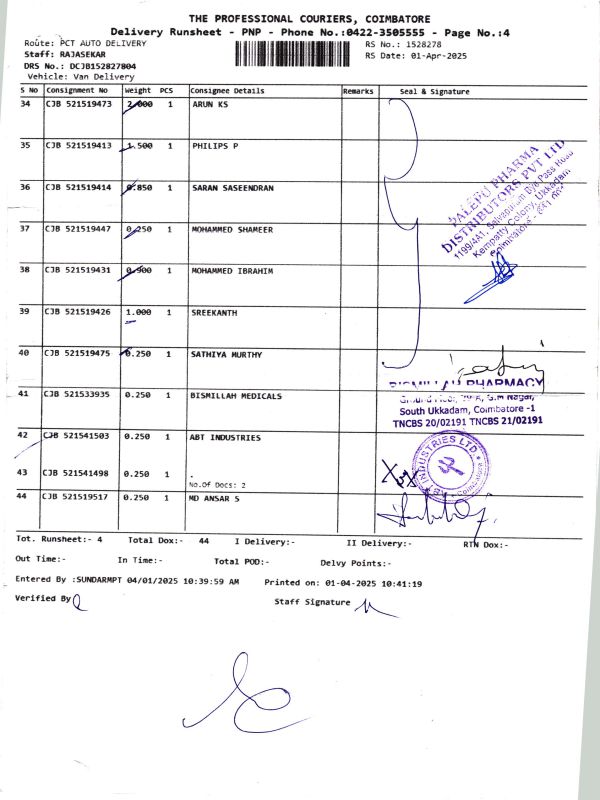 THE PROFESSIONAL COURIERS, COIMBATORE
Delivery Runsheet - PNP - Phone No.:0422-3505555 - Page No.:4
Route: PCT AUTO DELIVERY
RS No.: 1528278
Staff: RAJASEKAR
RS Date: 01-Apr-2025
DRS No.: DCJB152827804
Vehicle: Van Delivery
S No Consignment No Weight PCS Consignee Details Remarks Seal & Signature
34 CJB 521519473 2.000 1 ARUN KS
35 CJB 521519413 1.500 1 PHILIPS P
36 CJB 521519414 0.850 1 SARAN SASEENDRAN
37 CJB 521519447 0.250 1 MOHAMMED SHAMEER
38 CJB 521519431 0.900 1 MOHAMMED IBRAHIM
39 CJB 521519426 1.000 1 SREEKANTH
40 CJB 521519475 0.250 1 SATHIYA MURTHY
41 CJB 521533935 0.250 1 BISMILLAH MEDICALS
42 CJB 521541503 0.250 1 ABT INDUSTRIES
43 CJB 521541498 0.250 1 .
No.Of Docs: 2
44 CJB 521519517 0.250 1 MD ANSAR S
DALEPU PHARMA
DISTRIBUTORS PVT LTD
1199/4A1, Salvarpuram Bye Pass Road
Kempatty Colony, Ukkadam
Coimbatore - 641 001
BISMILLAH PHARMACY
Ground Floor, G.M Nagar,
South Ukkadam, Coimbatore -1
TNCBS 20/02191 TNCBS 21/02191
ABT INDUSTRIES LTD
Tot. Runsheet:- 4 Total Dox:- 44 I Delivery:- II Delivery:- RTN Dox:-
Out Time:- In Time:- Total POD:- Delvy Points:-
Entered By :SUNDARMPT 04/01/2025 10:39:59 AM Printed on: 01-04-2025 10:41:19
Verified By
Staff Signature